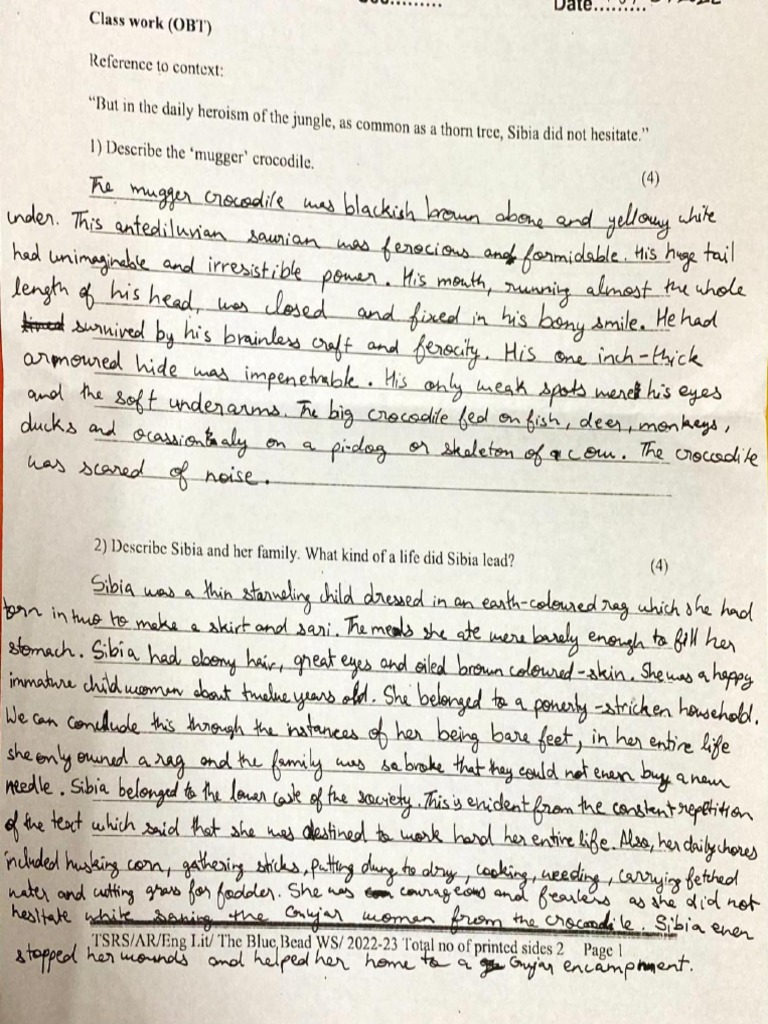 Date.........
Class work (OBT)
Reference to context:
"But in the daily heroism of the jungle, as common as a thorn tree, Sibia did not hesitate."
1) Describe the 'mugger' crocodile.
(4)
The mugger crocodile was blackish brown above and yellowy white
under. This antediluvian saurian was ferocious and formidable. His huge tail
had unimaginable and irresistible power. His mouth, running almost the whole
length of his head, was closed and fixed in his bony smile. He had
survived by his brainless craft and ferocity. His one inch-thick
armoured hide was impenetrable. His only weak spots were his eyes
and the soft underarms. The big crocodile fed on fish, deer, monkeys,
ducks and ocassionaly on a pi-dog or skeleton of a cow. The crocodile
was scared of noise.
2) Describe Sibia and her family. What kind of a life did Sibia lead?
(4)
Sibia was a thin starveling child dressed in an earth-coloured rag which she had
torn in two to make a skirt and sari. The meals she ate were barely enough to fill her
stomach. Sibia had ebony hair, great eyes and oiled brown coloured-skin. She was a happy
immature child women about twelve years old. She belonged to a poverty-stricken household.
We can conclude this through the instances of her being bare feet, in her entire life
she only owned a rag and the family was so broke that they could not even buy a new
needle. Sibia belonged to the lower caste of the society. This is evident from the constant repetition
of the text which said that she was destined to work hard her entire life. Also, her daily chores
included husking corn, gathering sticks, putting dung to dry, cooking, weeding, carrying fetched
water and cutting grass for fodder. She was courageous and fearless as she did not
hesitate while saving the Gujar women from the crocodile. Sibia even
TSRS/AR/Eng Lit/ The Blue Bead WS/ 2022-23 Total no of printed sides 2 Page 1
stopped her wounds and helped her home to a Gujar encampment.